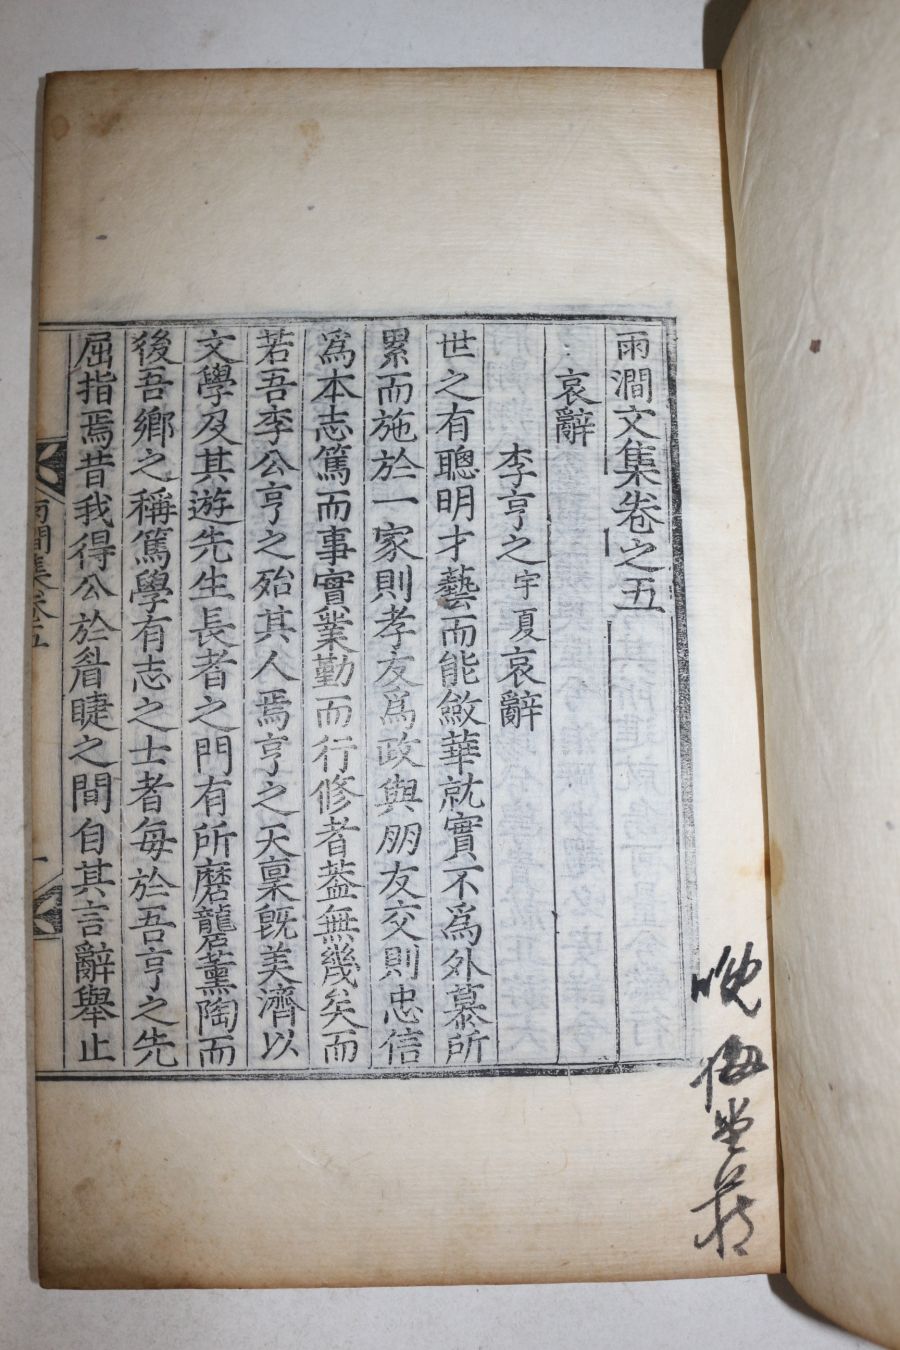 雨澗文集卷之五
哀辭
李亨之宇夏哀辭
世之有聰明才藝而能斂華就實不爲外慕所
累而施於一家則孝友爲政與朋友交則忠信
爲本志篤而事實業勤而行修者葢無幾矣而
若吾李公亨之殆其人焉亨之天稟旣美濟以
文學及其遊先生長者之門有所磨礱薰陶而
後吾鄉之稱篤學有志之士者每於吾亨之先
屈指焉昔我得公於眉睫之間自其言辭舉止
雨澗集卷五
一
晩
堂藏